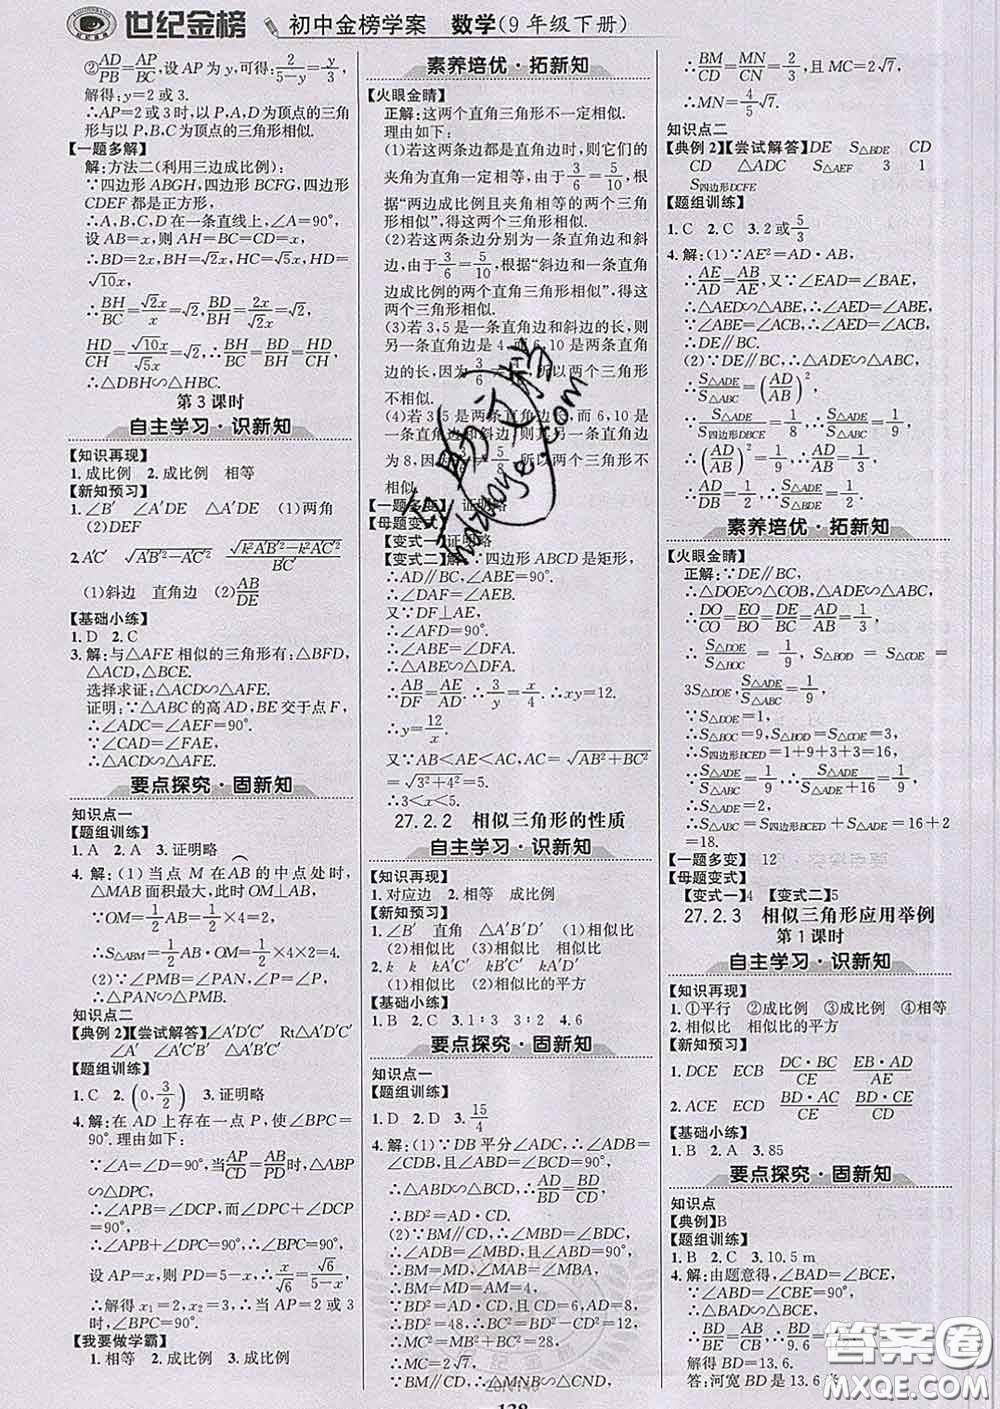 世纪金榜 初中金榜学案 数学(9年级下册)
②AD/PB=AP/BC,设AP为y,可得:2/(5-y)=y/3,
解得:y=2或3.
∴AP=2或3时,以P,A,D为顶点的三角
形与以P,B,C为顶点的三角形相似.
【一题多解】
解:方法二(利用三边成比例):
∵四边形ABGH,四边形BCFG,四边形
CDEF都是正方形,
∴A,B,C,D在一条直线上,∠A=90°,
设AB=x,则AH=BC=CD=x,
∴BD=2x,BH=√2x,HC=√5x,HD=
√10x,
∴BH/BC=√2x/x=√2,BD/BH=2x/√2x=√2,
HD/CH=√10x/√5x=√2,∴BH/BC=BD/BH=HD/CH,
∴△DBH∽△HBC.
第3课时
自主学习·识新知
【知识再现】
1.成比例 2.成比例 相等
【新知预习】
1.∠B′ ∠A′DE ∠A′DE (1)两角
(2)DEF
2.A′C′ √(A′B′²-A′C′²) √(k²A′B′²-k²A′C′²)/B′C′
(1)斜边 直角边 (2)AB/DE
【基础小练】
1.D 2.C
3.解:与△AFE相似的三角形有:△BFD,
△ACD,△BCE.
选择求证:△ACD∽△AFE.
证明:∵△ABC的高AD,BE交于点F,
∴∠ADC=∠AEF=90°.
∵∠CAD=∠FAE,
∴△ACD∽△AFE.
要点探究·固新知
知识点一
【题组训练】
1.A 2.A 3.证明略
4.解:(1)当点M在AB的中点处时,
△MAB面积最大,此时OM⊥AB,
∵OM=1/2AB=1/2×4=2,
∴S△ABM=1/2AB·OM=1/2×4×2=4.
(2)∵∠PMB=∠PAN,∠P=∠P,
∴△PAN∽△PMB.
知识点二
【典例2】【尝试解答】∠A′D′C′ Rt△A′D′C′
∠A′ ∠A′D′C′ ∠A′C′B′
【题组训练】
1.C 2.(0,3/2) 3.证明略
4.解:在AD上存在一点P,使∠BPC=
90°.理由如下:
∵∠A=∠D=90°,当AP/CD=AB/PD时,△ABP
∽△DPC,
∴∠APB=∠DCP,而∠DPC+∠DCP=90°,
∴∠APB+∠DPC=90°,∴∠BPC=90°,
设AP=x,则PD=5-x,∴x/√6=√6/(5-x),
∴解得x₁=2,x₂=3,∴当AP=2或3
时,∠BPC=90°.
【我要做学霸】
1.相等 2.成比例 3.成比例
素养培优·拓新知
【火眼金睛】
正解:这两个直角三角形不一定相似.
理由如下:
(1)若这两条边都是直角边时,则它们的
夹角为直角一定相等,由于3/6=5/10,根
据“两边成比例且夹角相等的两个三角
形相似”,得这两个三角形相似.
(2)若这两条边分别为一直角边和斜
边,由于3/6=5/10,根据“斜边和一条直角
边成比例的两个直角三角形相似”,得这
两个三角形相似.
(3)若3,5是一直角边和斜边的长,则
另一条直角边是4,而6,10是两条直角
边的长,3/6 所以两个三角形
不相似.
(4)若3,5是两条直角边长,而6,10是
一直角边和斜边长,则另一条直角边
为8,因为 5/8,所以两个三角形不
相似.
【一题多变】 证明略
【母题变式】
【变式一】证明略
【变式二】解:∵四边形ABCD是矩形,
∴AD∥BC,∠ABE=90°.
∴∠DAF=∠AEB.
又∵DF⊥AE,
∴∠AFD=90°.
∴∠ABE=∠DFA.
∴△ABE∽△DFA.
∴AB/DF=AE/AD.∴3/y=x/4.∴xy=12.
∴y=12/x.
又∵AB<AE<AC=√(AB²+BC²)
=√(3²+4²)=5.
∴3<x≤5.
27.2.2 相似三角形的性质
自主学习·识新知
【知识再现】
1.对应边 2.相等 成比例
【新知预习】
1.∠B′ 直角 △A′B′D′ (1)相似比
(2)相似比 (3)相似比
2.k k kA′C′ kB′C′ kA′B′ k
(1)相似比 (2)相似比的平方
【基础小练】
1.B 2.C 3.1∶3 3∶2 4.6
要点探究·固新知
知识点一
【题组训练】
1.D 2.D 3.15/4
4.解:(1)∵DB平分∠ADC,∴∠ADB=
∠CDB,且∠ABD=∠BCD=90°,
∴△ABD∽△BCD,∴AD/BD=BD/CD,
∴BD²=AD·CD.
(2)∵BM∥CD,∴∠MBD=∠BDC,
∴∠ADB=∠MBD,且∠ABD=90°,
∴BM=MD,∠MAB=∠MBA,
∴BM=MD=AM=4.
∵BD²=AD·CD,且CD=6,AD=8,
∴BD²=48,∴BC²=BD²-CD²=12,
∴MC²=MB²+BC²=28,
∴MC=2√7.
∵BM∥CD,∴△MNB∽△CND,
∴BM/CD=MN/CN=2/3,且MC=2√7,
∴MN=4/5√7.
知识点二
【典例2】【尝试解答】DE S△BDE CD
CD △ADC S△AEF 3 1
S四边形DCFE
【题组训练】
1.C 2.C 3.2或5/3
4.解:(1)∵AE²=AD·AB,
∴AE/AD=AB/AE,又∵∠EAD=∠BAE,
∴△AED∽△ABE,∴∠AED=∠ABE,
∵∠ABE=∠ACB,∴∠AED=∠ACB,
∴DE∥BC.
(2)∵DE∥BC,∴△ADE∽△ABC,
∴S△ADE/S△ABC=(AD/AB)²,
∵S△ADE/S四边形BCED=1/8,∴S△ADE/S△ABC=1/9,
∴(AD/AB)²=1/9,∴AD/AB=1/3,
∴AD/DB=1/2,∴S△ADE/S△BDE=1/2.
素养培优·拓新知
【火眼金睛】
正解:∵DE∥BC,
∴△DOE∽△COB,△ADE∽△ABC,
∴DO/CO=EO/BO=DE/BC=AD/AB=1/3,
∴S△DOE/S△BOC=1/9,S△BOD=S△COE=
3S△DOE,S△ADE/S△ABC=1/9,
∵S△DOE=1,
∴S△BOC=9,S△BOD=S△COE=3,
∴S四边形BCED=1+9+3+3=16,
∵S△ADE/S△ABC=1/9,
∴S△ABC=S四边形BCED+S△ADE=16+2
=18.
【一题多变】 12
【母题变式】
【变式一】4 【变式二】5
27.2.3 相似三角形应用举例
第1课时
自主学习·识新知
【知识再现】
1.①平行 ②成比例 ③成比例 ④相等
2.相似比 相似比的平方
【新知预习】
1.DCE ECB DC·BC/CE EB·AD/AE
2.ACE ECD BD·AC/CE BD·CE/BC
【基础小练】
1.B 2.A 3.85
要点探究·固新知
知识点
【典例】B
【题组训练】
1.B 2.C 3.10.5 m
4.解:由题意得,∠BAD=∠BCE,
∵∠ABD=∠CBE=90°,
∴△BAD∽△BCE,
∴BD/BE=AB/CB,∴BD/
解得BD=13.6.
答:河宽BD是13.6米.
答案圈
MXQE.COM
138